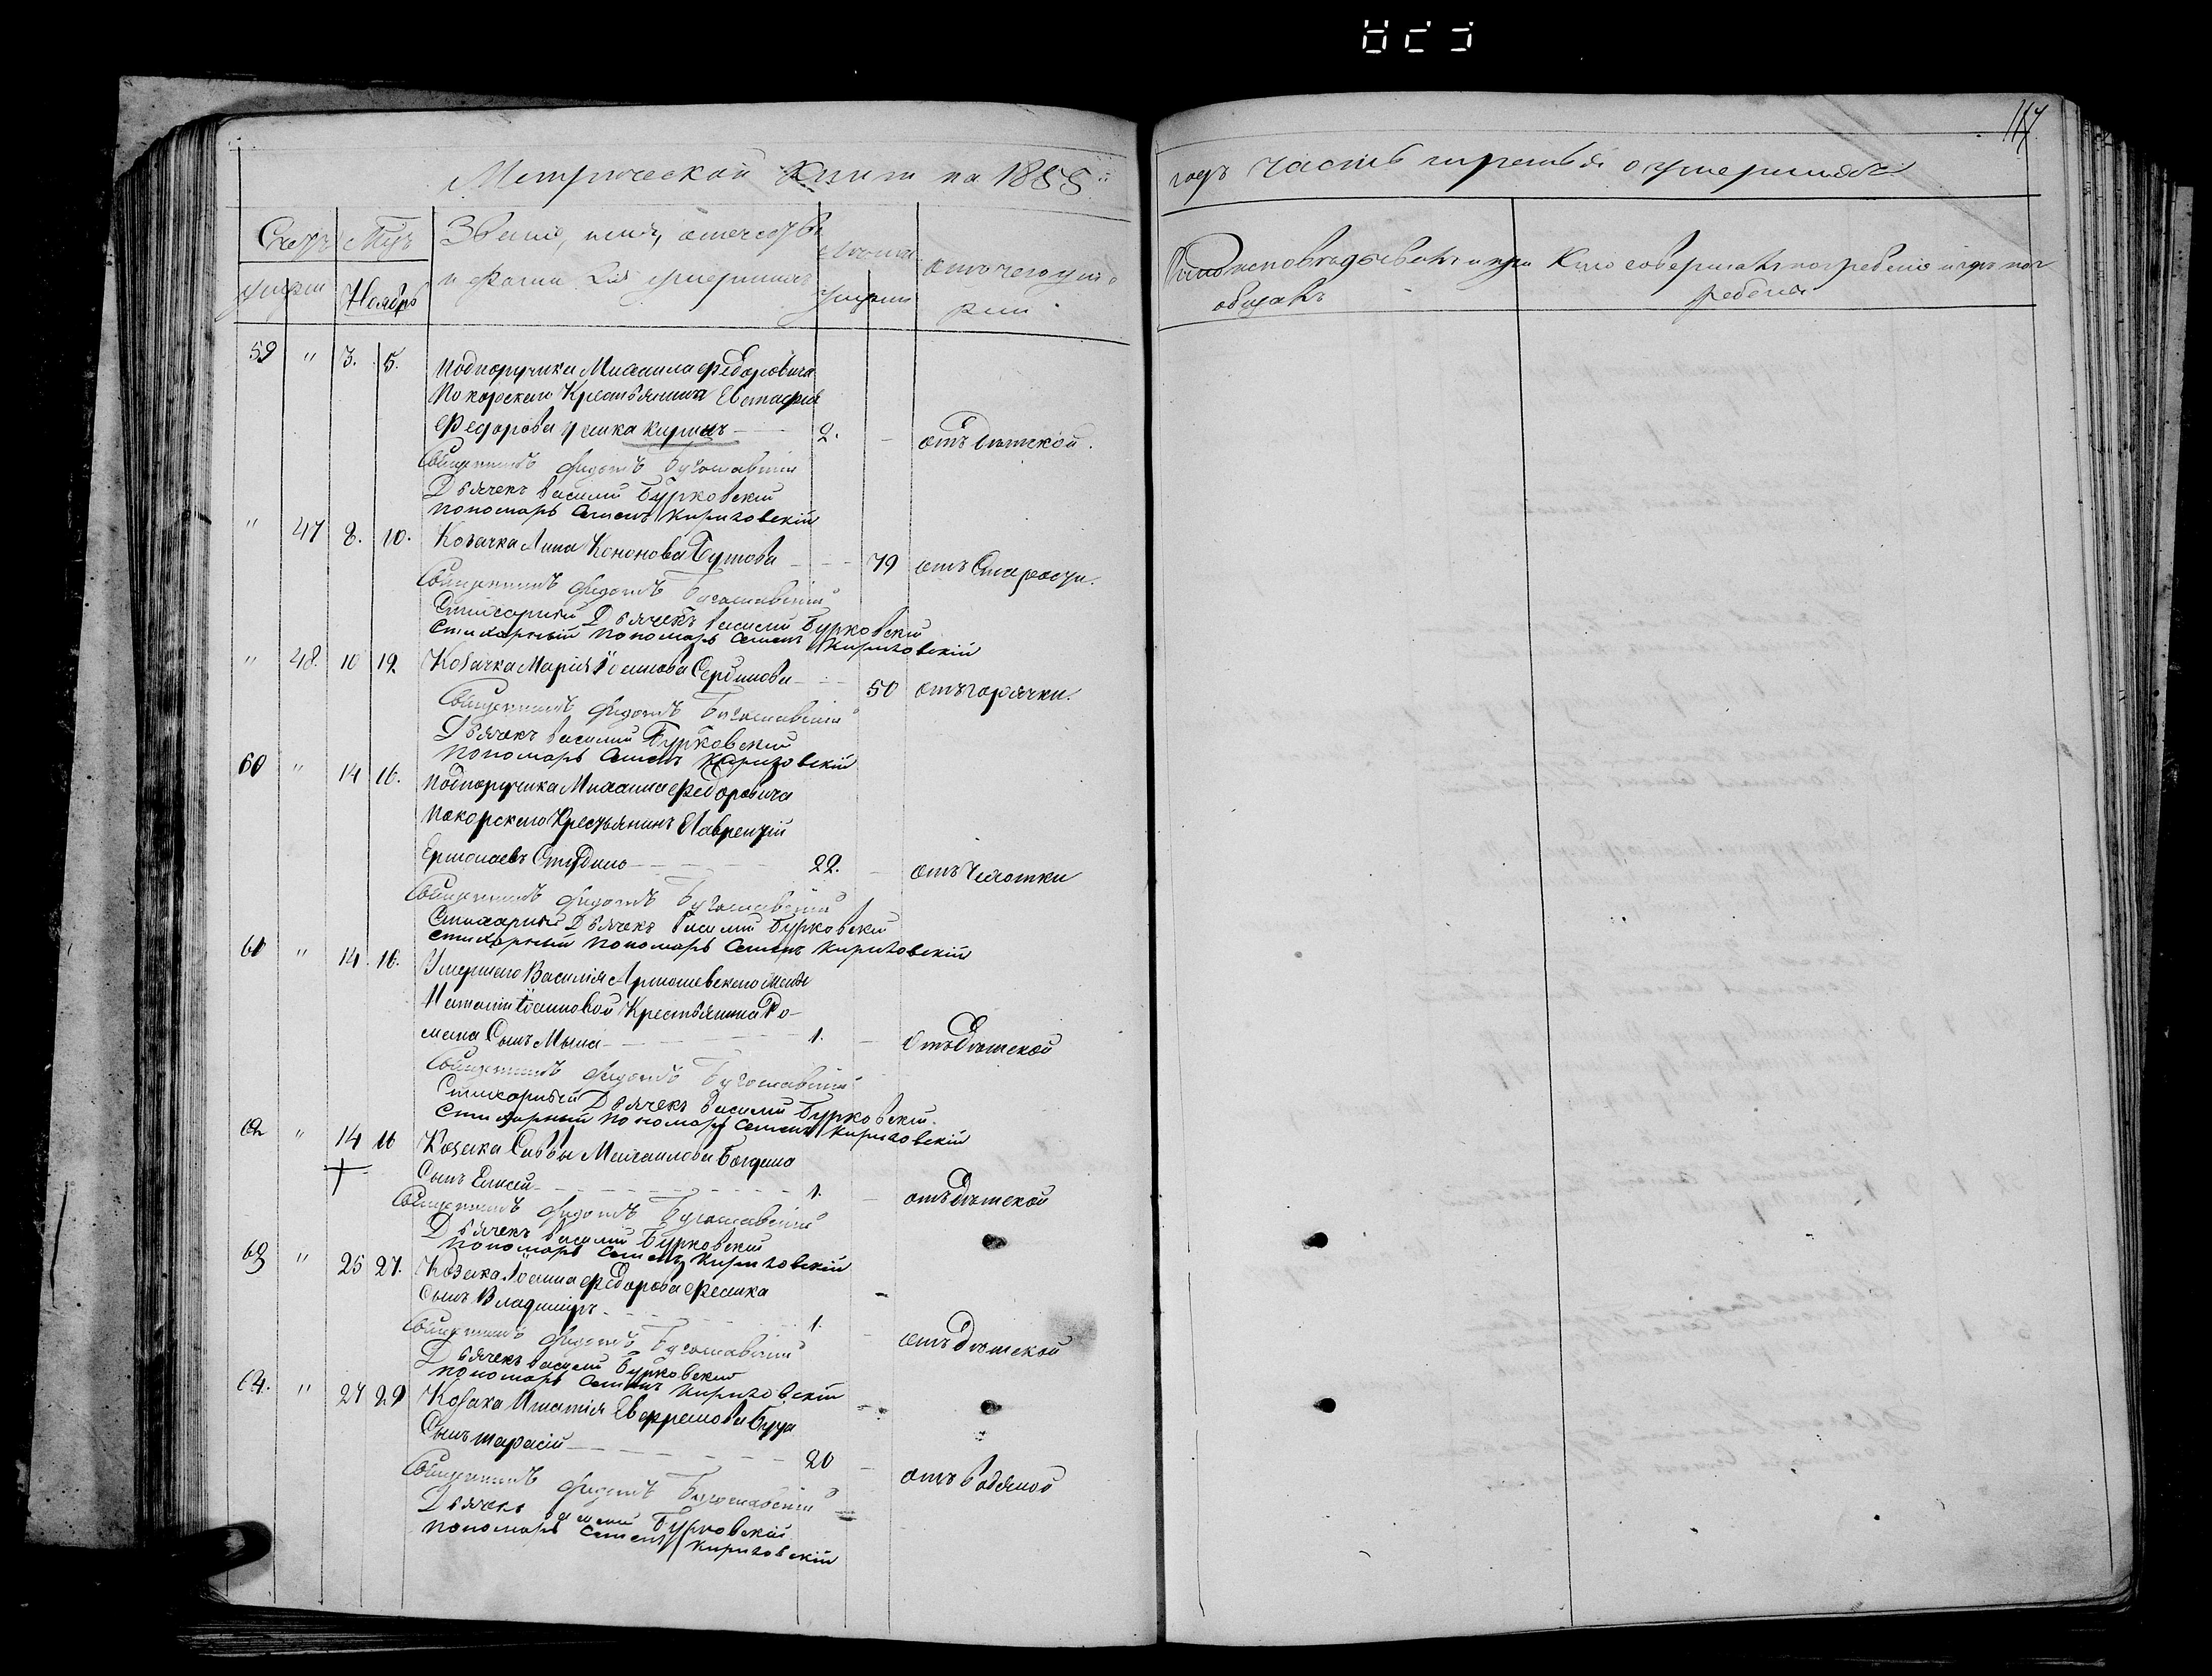 117
Метрической Книги на 1855й
годъ часть третья о умершихъ
Счетъ
умерш
Мцъ
Ноябрь
Званіе, имя, отечество
и фамилія умершихъ
Лѣта
умерш
отъ чего умер
Кто исповѣдывалъ и при
общалъ
Кто совершалъ погребеніе и гдѣ пог
ребены
59 " 3. 5. Подпоручика Михаила Федоровича
Покорскаго Крестьянина Евстафія
Федорова сынъ Кирилъ 2. отъ дѣтской.
Священникъ Федотъ Богославскій
Дьячекъ Василій Бурковскій
пономарь Семенъ Кириловскій
" 47 8. 10. Козачка Анна Кононова Бутова 79 отъ Старости.
Священникъ Федотъ Богославскій
Стихарный Дьячекъ Василій Бурковскій
Стихарный пономарь Семенъ Кириловскій
" 48. 10 12 Козачка Марія Іоаннова Сердюкова 50 отъ горячки.
Священникъ Федотъ Богославскій
Дьячекъ Василій Бурковскій
пономарь Семенъ Кириловскій
60 " 14 16. Подпоручика Михаила Федоровича
Покорскаго Крестьянинъ Лаврентій
Ермолаевъ Студило 22. отъ Чахотки
Священникъ Федотъ Богославскій
Стихарный Дьячекъ Василій Бурковскій
стихарный пономарь Семенъ Кириловскій
61 " 14. 16. Умершаго Василія жены
Наталіи Іоанновой Крестьянина Ро-
мана Сынъ 1. отъ дѣтской
Священникъ Федотъ Богославскій
Стихарный Дьячекъ Василій Бурковскій.
Стихарный пономарь Семенъ Кириловскій
62 " 14 16 Козака Саввы Михаилова Богдана
Сынъ Елисей 1. отъ дѣтской
Священникъ Федотъ Богославскій
Дьячекъ Василій Бурковскій
пономарь Семенъ Кириловскій
63 " 25 27. Козака Іоанна Федорова Фесика
Сынъ Владиміръ 1. отъ дѣтской
Священникъ Федотъ Богославскій
Дьячекъ Василій Бурковскій
пономарь Семенъ Кириловскій
64. " 27 29 Козака Игнатія Евфремова
Сынъ Тарасій 20 отъ водяной
Священникъ Федотъ Богославскій
Дьячекъ Василій Бурковскій
пономарь Семенъ Кириловскій